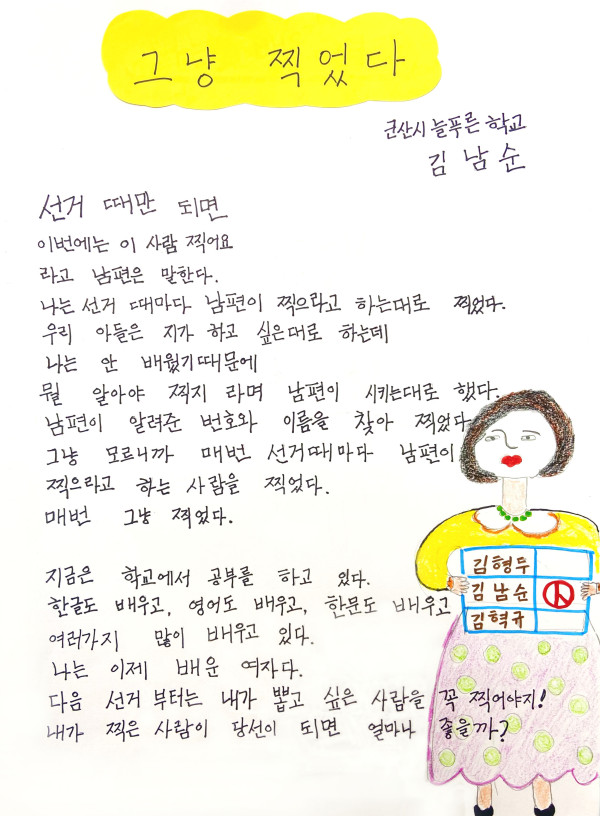 그냥 찍었다
군산시 늘푸른 학교
김 남 순
선거 때만 되면
이번에는 이 사람 찍어요
라고 남편은 말한다.
나는 선거 때마다 남편이 찍으라고 하는대로 찍었다.
우리 아들은 지가 하고 싶은대로 하는데
나는 안 배웠기때문에
뭘 알아야 찍지 라며 남편이 시키는대로 했다.
남편이 알려준 번호와 이름을 찾아 찍었다
그냥 모르니까 매번 선거때마다 남편이
찍으라고 하는 사람을 찍었다.
매번 그냥 찍었다.
지금은 학교에서 공부를 하고 있다.
한글도 배우고, 영어도 배우고, 한문도 배우고
여러가지 많이 배우고 있다.
나는 이제 배운 여자다.
다음 선거 부터는 내가 뽑고 싶은 사람을 꼭 찍어야지!
내가 찍은 사람이 당선이 되면 얼마나 좋을까?
김형두
김남순
김혁규